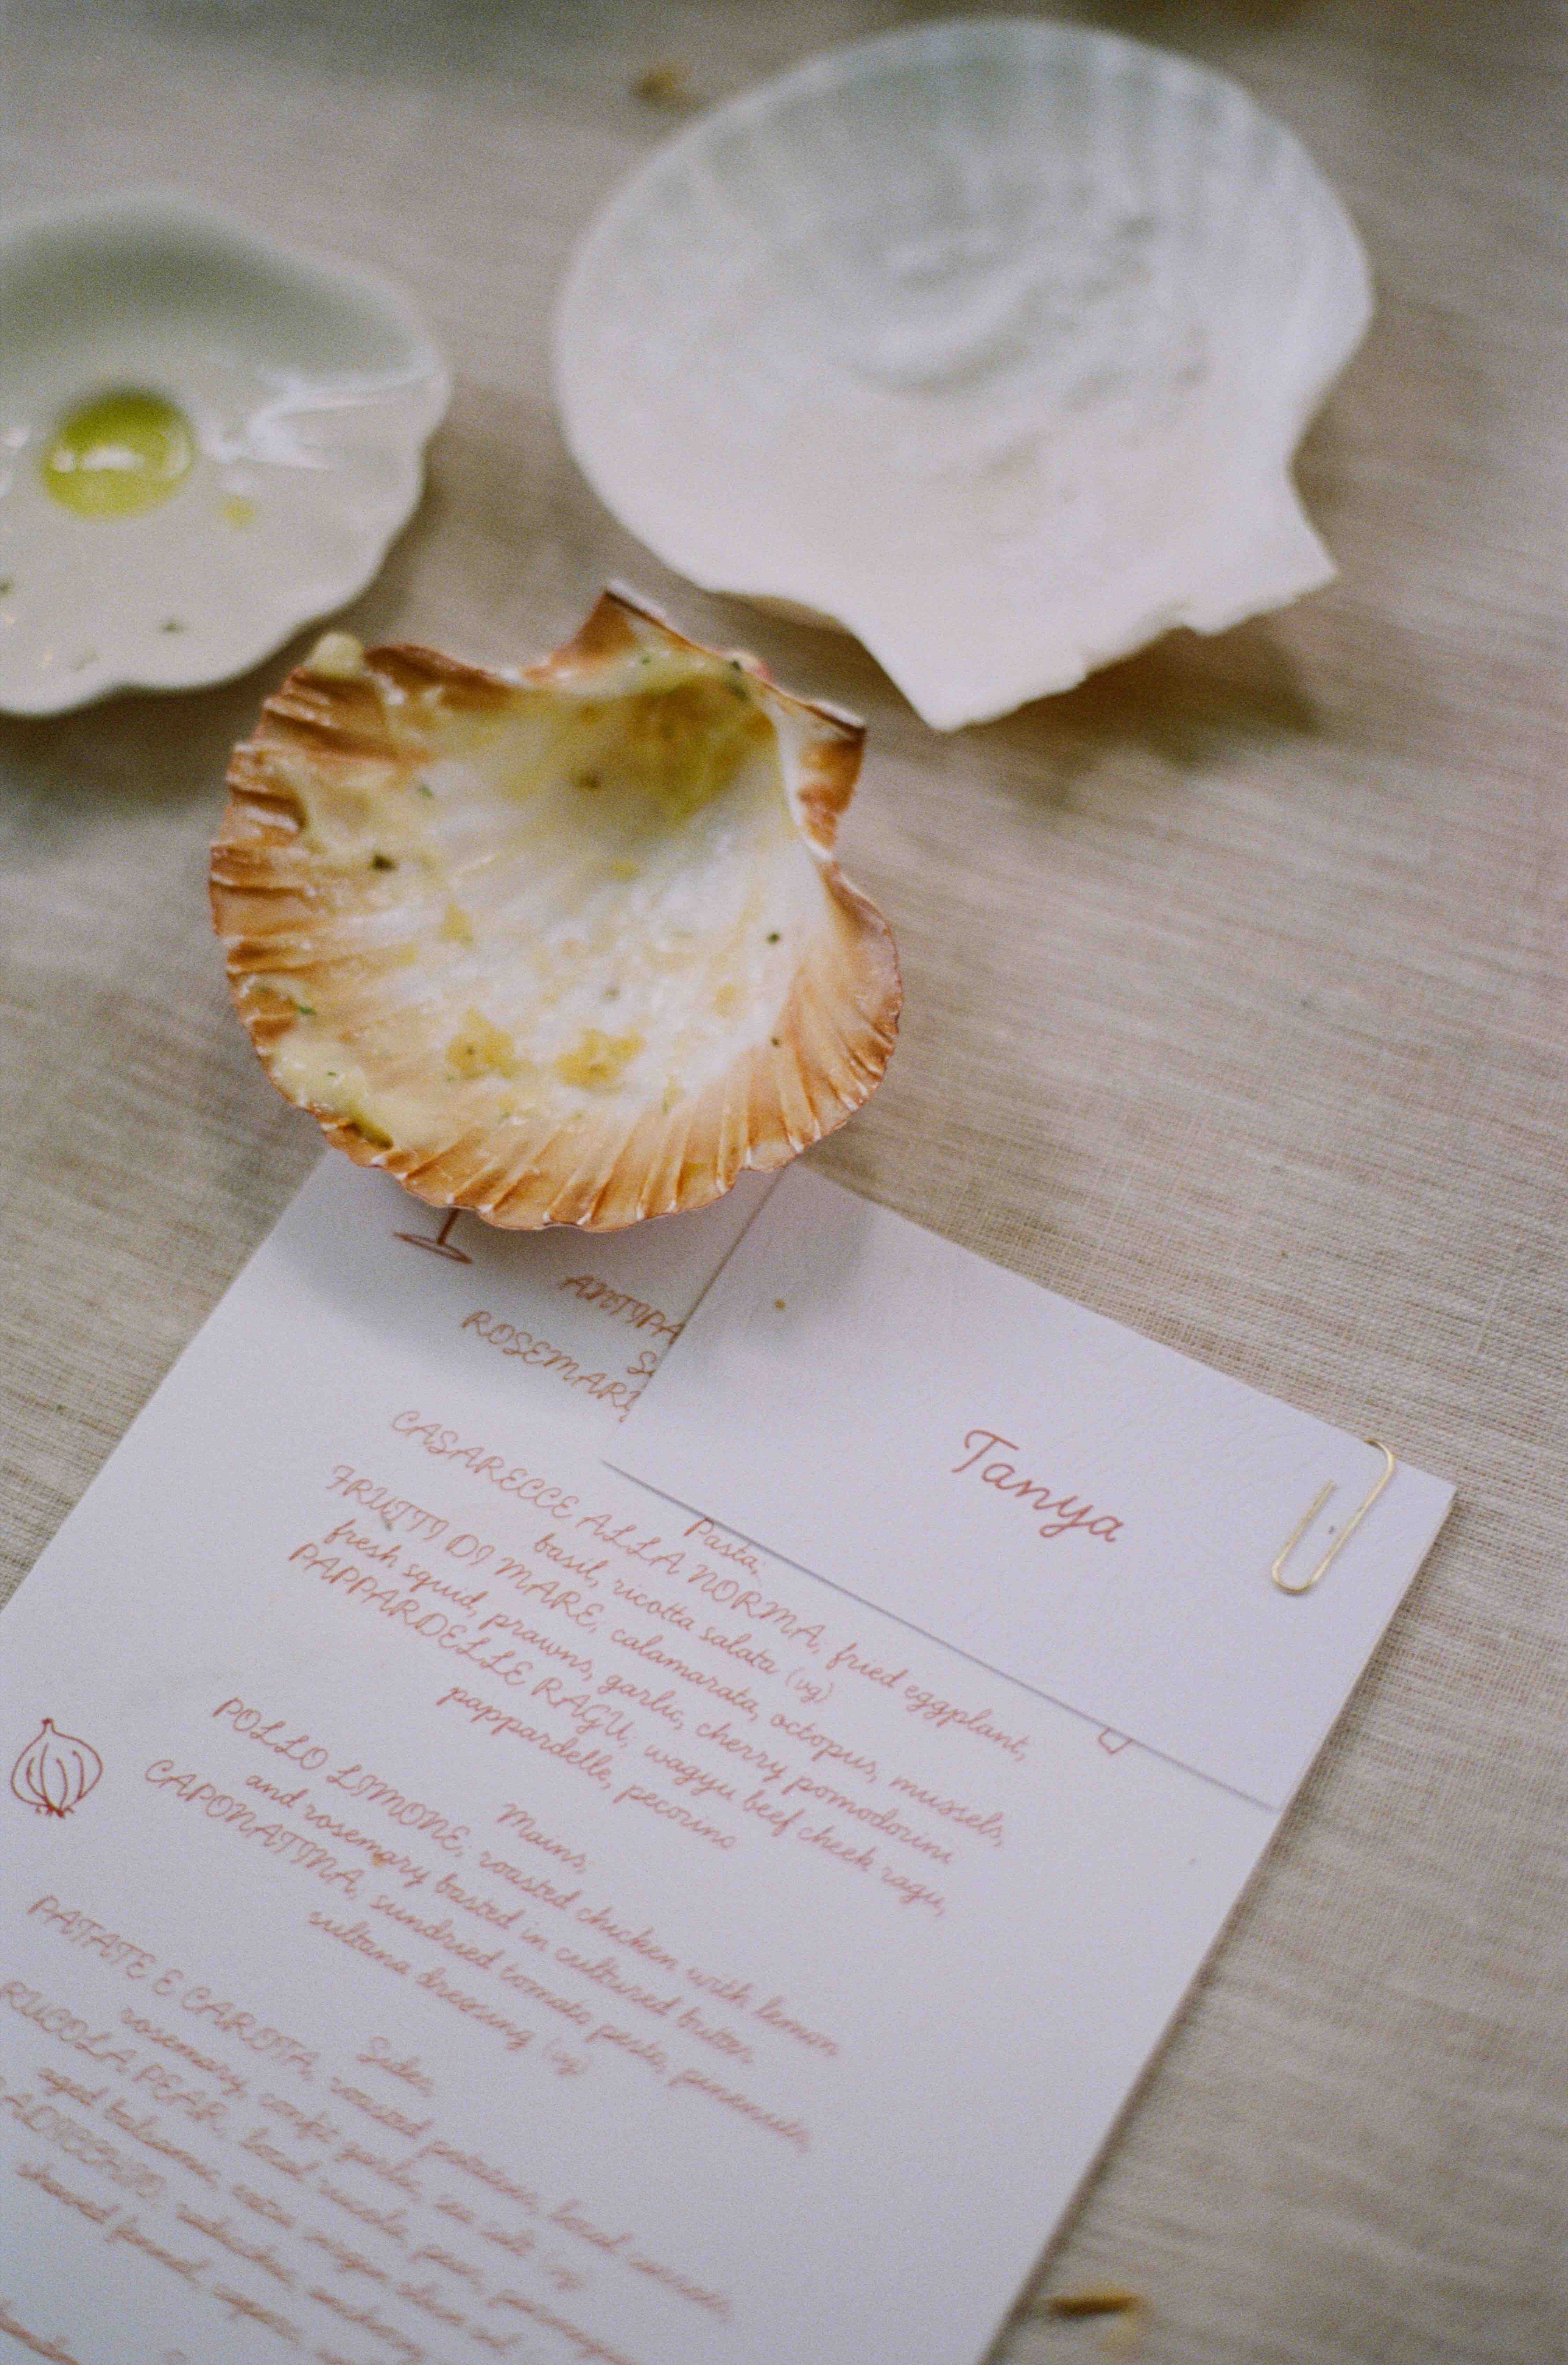 ANTIPA
ROSEMARY
Tanya
Pasta,
CASARECCE ALLA NORMA, fried eggplant,
basil, ricotta salata (vg)
FRUTTI DI MARE, calamarata, octopus, mussels,
fresh squid, prawns, garlic, cherry pomodorini
PAPPARDELLE RAGU, wagyu beef cheek ragu,
pappardelle, pecorino
Mains,
POLLO LIMONE, roasted chicken with lemon
and rosemary basted in cultured butter
CAPONATINA, sundried tomato pesto, pinenuts,
sultana dressing (vg)
Sides,
PATATE E CAROTA, roasted potatoes, local carrots,
rosemary, confit garlic, sea salt (vg)
RUCOLA PEAR, local rucola, pear,
aged balsamic, extra virgin olive oil,
radicchio, anchovy
shaved fennel, capers,